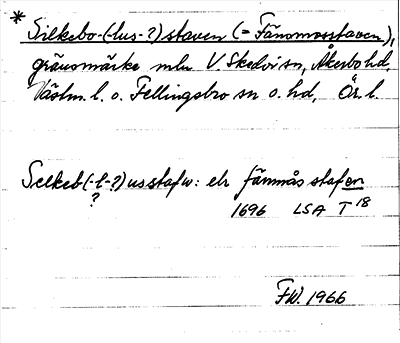 * Silkebo-(-lus-?) staven (= Fänmosstaven),
gränsmärke mln V. Skedvi sn, Åkerbo hd,
Västm. l. o. Fellingsbro sn o. hd, Ör. l.
Selkeb(-l-?)usstafw: elr fänmås stafen
?
1696 LSA T 18
FW. 1966